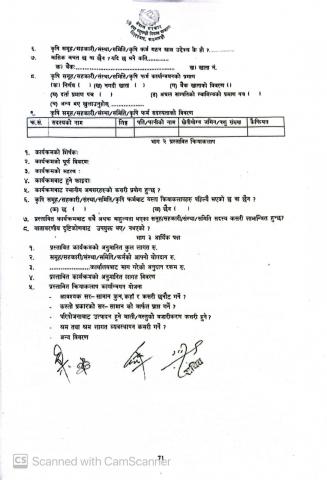 नेपाल सरकार
६. कृषि समूह/सहकारी/संस्था/समिति/कृषि फर्म गठन खास उद्देश्य के हो ?
७. मासिक बचत छ या छैन ? यदि छ भने कति
क) बैंक: ख) खाता नं.
८. कृषि समूह/सहकारी/संस्था/समिति/कृषि फर्म कार्यान्वयनको प्रमाण
(क) निर्णय ( ) (ख) नगदी खाता ( ) (ग) बैंक खाताको विवरण ( )
(घ) दर्ता प्रमाण पत्र ( ) (ङ) अचल सम्पत्तिको स्वामित्वको प्रमाण पत्र ( )
(च) अन्य भए खुलाउनुहोस्
९. कृषि समूह/सहकारी/संस्था/समिति/कृषि फर्म सदस्यताको विवरण
क्र.सं. सदस्यको नाम लिङ्ग पति/पत्नीको नाम खेतीयोग्य जमिन/पशु संख्या कैफियत
भाग २ प्रस्तावित क्रियाकलाप
१. कार्यक्रमको शिर्षक:
२. कार्यक्रमको पूर्ण विवरण:
३. कार्यक्रमको महत्व :
४. कार्यक्रमबाट हुने फाइदा:
५. कार्यक्रमबाट स्थानीय अवसरहरुको कसरी प्रयोग हुन्छ ?
६. कृषि समूह/सहकारी/संस्था/समिति/कृषि फर्मबाट यस्ता क्रियाकलापहरु पहिल्यै भएको छ या छैन ?
(क) छ ( ) (ख) छैन ( )
७. प्रस्तावित कार्यक्रमबाट वर्षे अथवा बाहुल्यता भएका समूह/सहकारी/संस्था/समिति सदस्य कसरी लाभान्वित हुन्छ?
८. वातावरणीय दृष्टिकोणबाट उपयुक्त भए/ नभएको ?
भाग ३ आर्थिक पक्ष
१. प्रस्तावित कार्यक्रमको अनुमानित कुल लागत रु.
२. समूह/सहकारी/संस्था/समिति/फर्मको आफ्नो योगदान रु.
३. कार्यालयबाट माग गरेको अनुदान रकम रु.
४. प्रस्तावित कार्यक्रमको अनुमानित लागत विवरण
५. प्रस्तावित क्रियाकलाप कार्यान्वयन योजना
- आवश्यक सर-सामान कुन, कहाँ र कसरी छनौट गर्ने ?
- कस्तो प्रकारको सर-सामान को मार्फत प्राप्त गर्ने ?
- परियोजनाबाट उत्पादन हुने माली/वस्तुको बजारीकरण कसरी हुने ?
- श्रम तथा श्रम लागत व्यवस्थापन कसरी गर्ने ?
- अन्य विवरण
71
CS Scanned with CamScanner